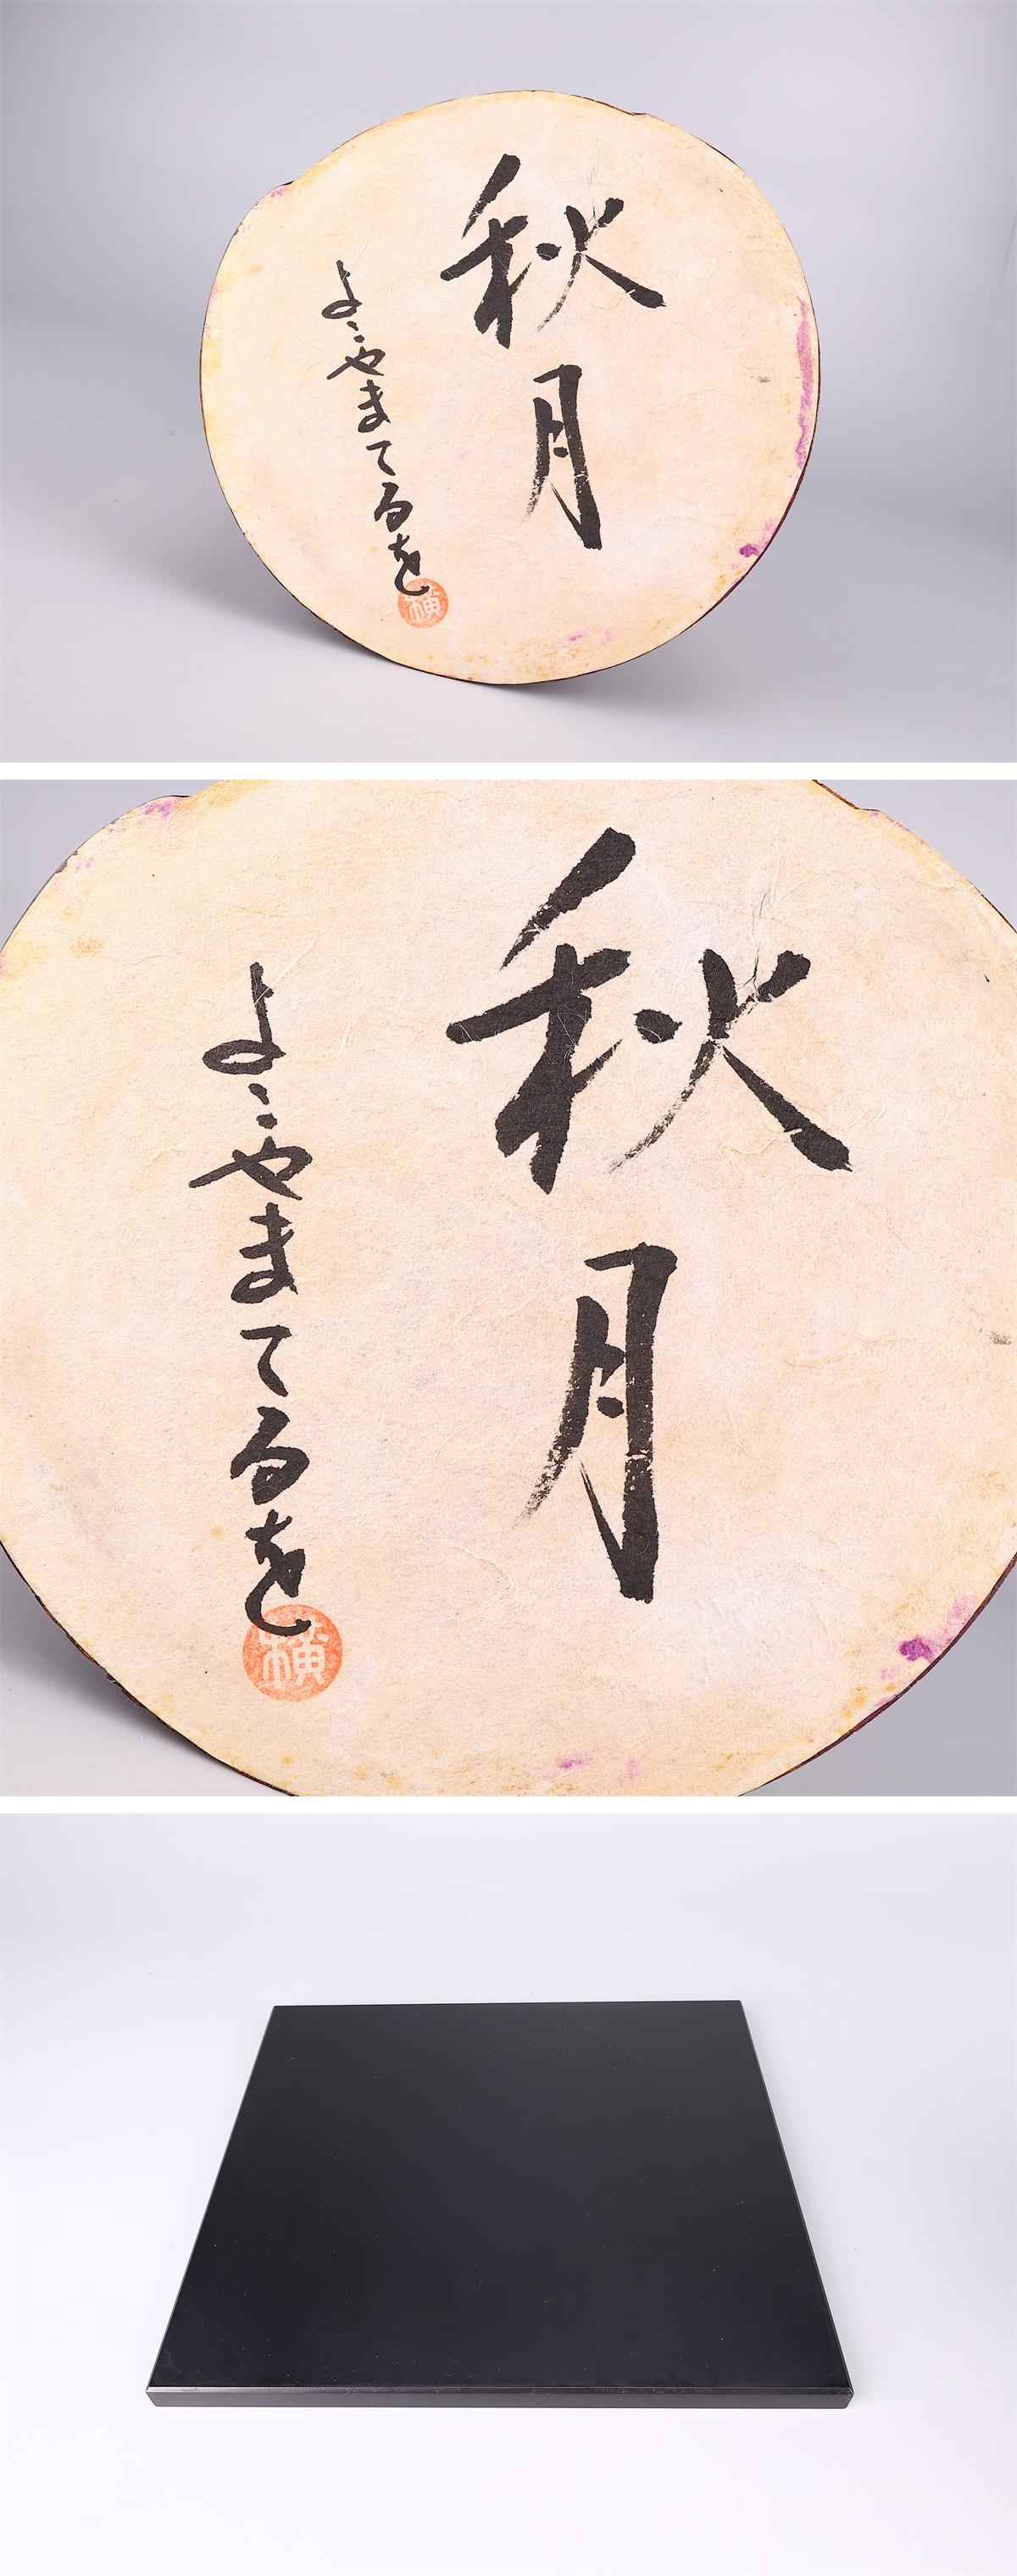 秋月
よこやまてるを
横
秋月
よこやまてるを
横